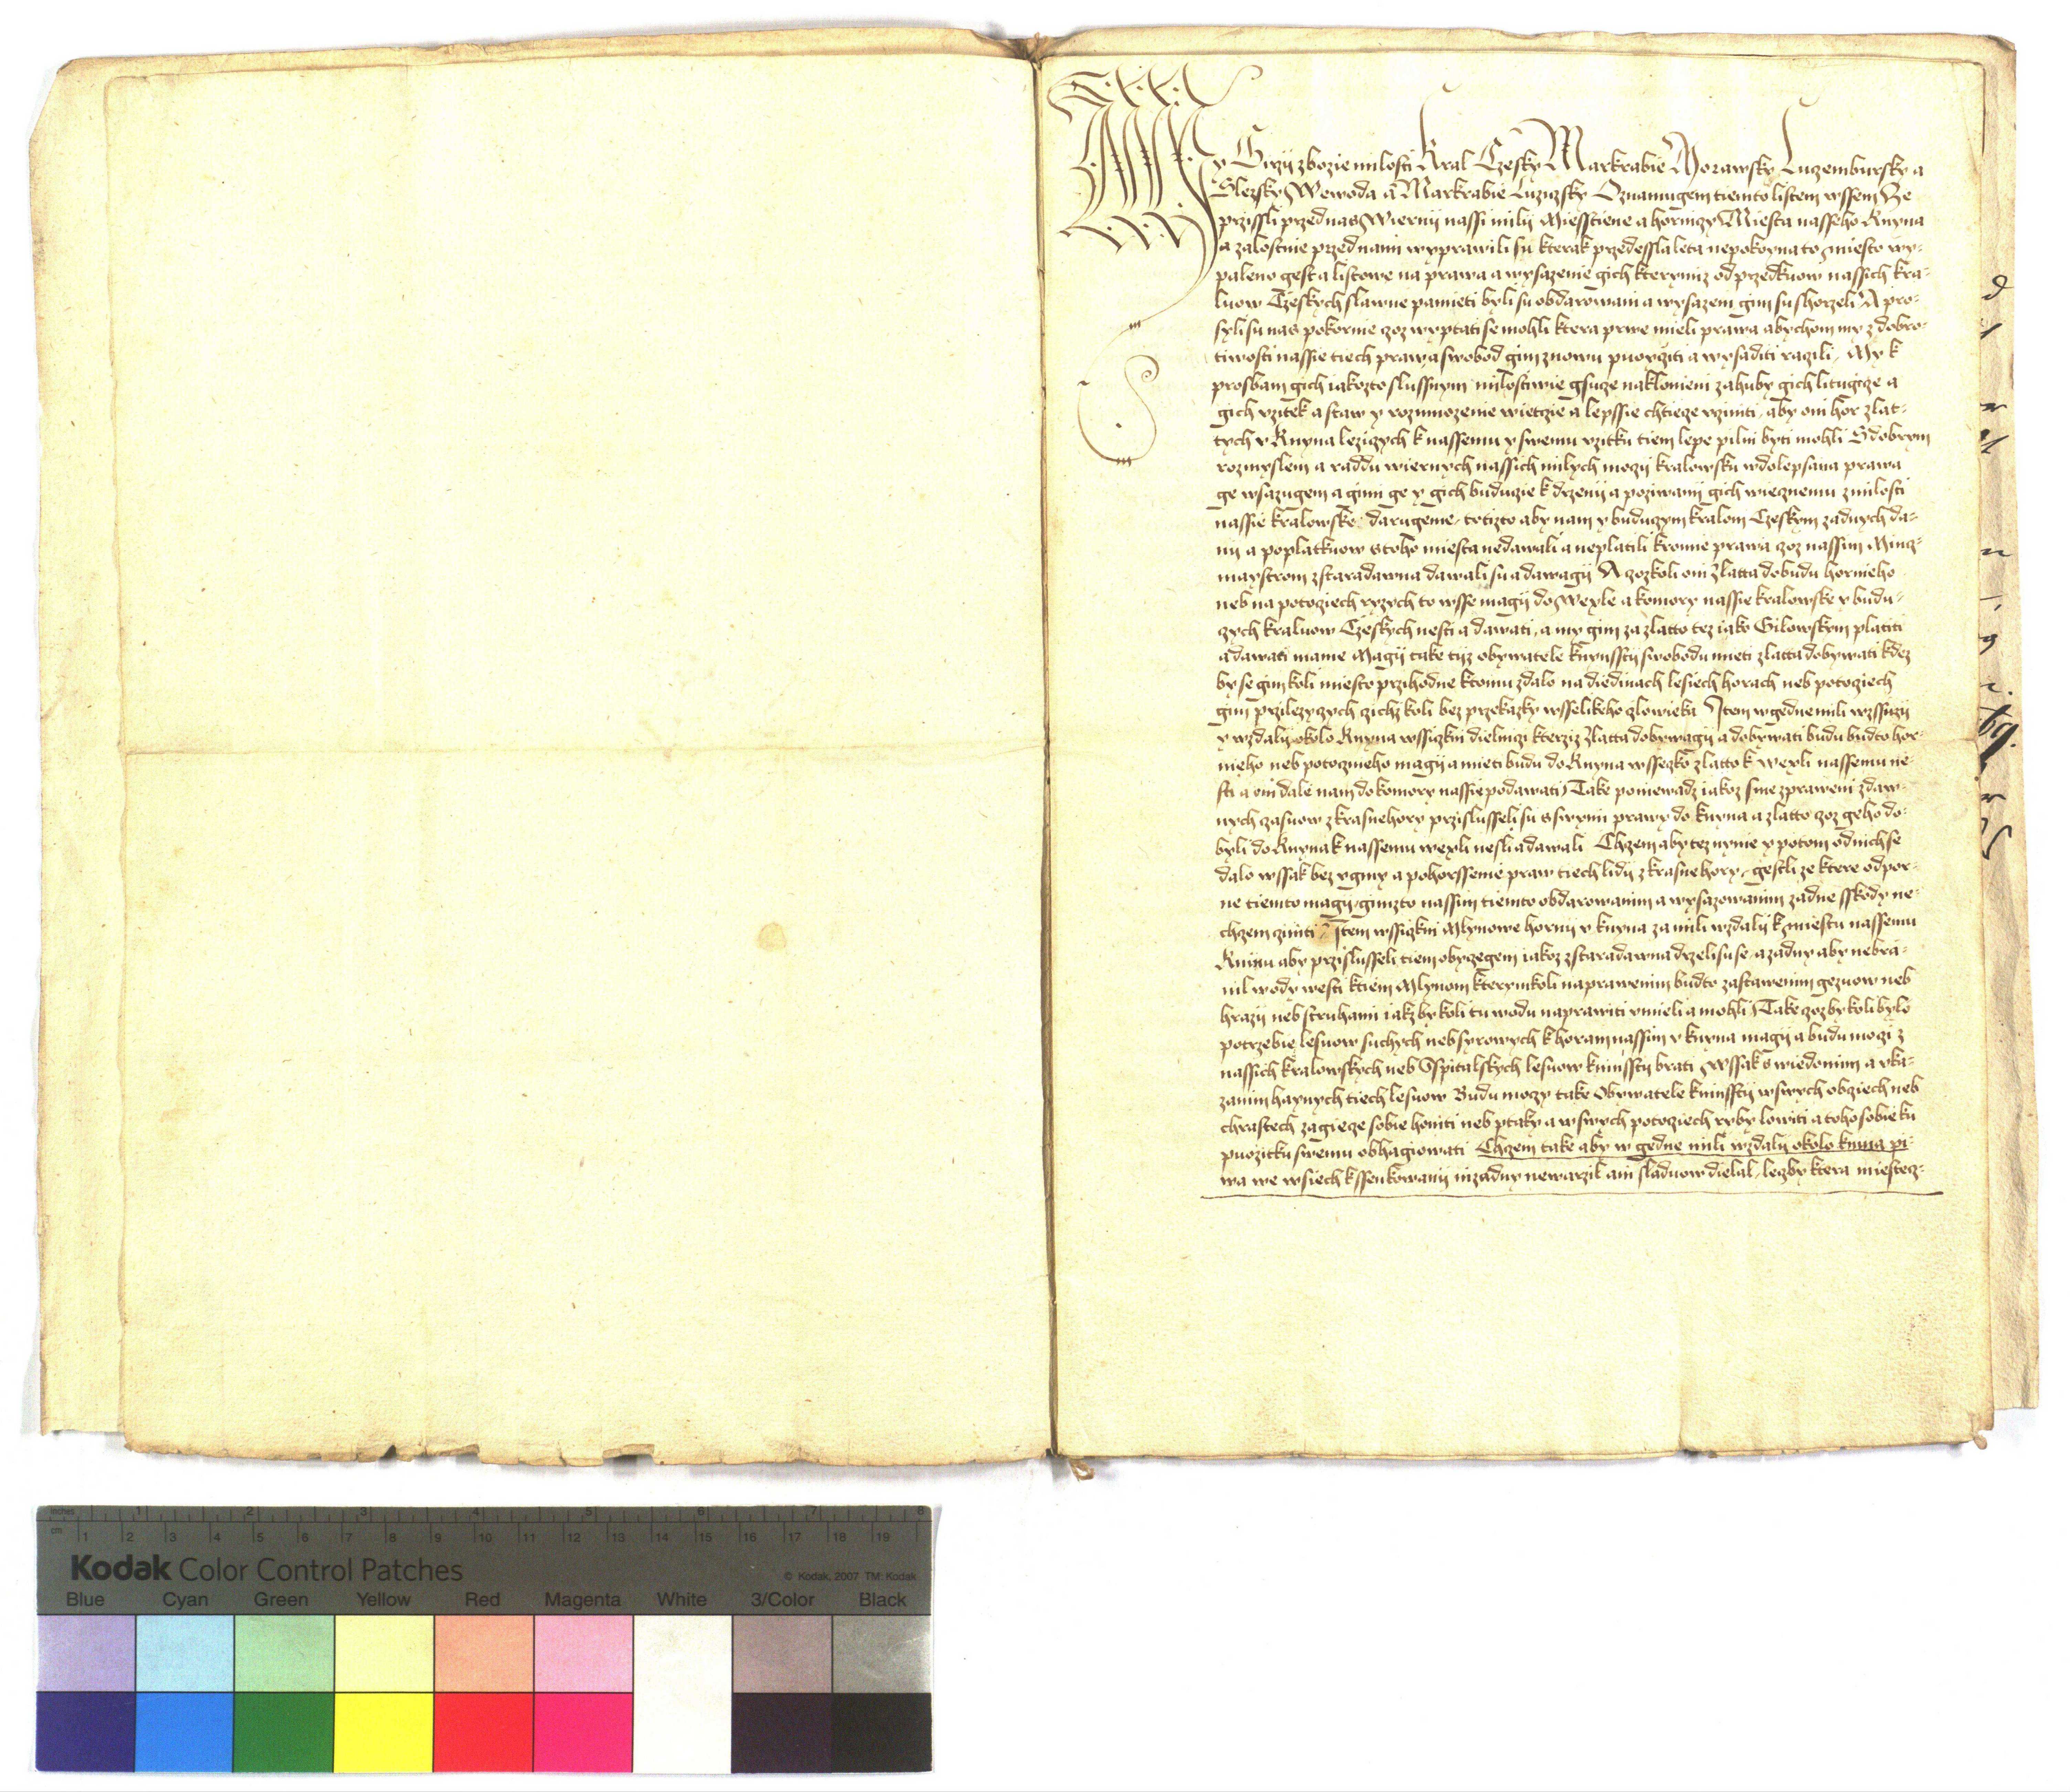 My Girzij zbozie milosti Kral Czesky Markrabie Morawsky Luczembursky a
Slezsky Wewoda a Markrabie Luzizsky Oznamugem tiemto listem wssem Ze
przissli przed nas Wiernij nassi milij Miesstiene a hornizy Miesta nasseho Knyna
a zalostnie przed nami wyprawili su kterak przedessla leta nepokoyna to Miesto wy-
paleno gest a listowe na prawa a wysazenie gich kterymiz od przedkuow nassich kra-
luow Czeskych slawne pamieti byli su obdarowani a wysazeni gim su shorzeli A pro-
syli su nas pokornie zoz wyptati se mohli ktera prwe mieli prawa abychom my z dobro-
tiwosti nassie tiech praw a swobod gim znowu puoyziti a wysaditi razili, My k
prosbam gich iakozto slussnym milostiwie gsuze naklonieni zahuby gich litugize a
gich vzitek a staw y rozmnozenie wietzie a lepssie chtieze vziniti, aby oni hor zlat-
tych v Knyna lezizych k nassemu y swemu vzitku tiem lepe pilni byti mohli S dobrym
rozmyslem a raddu wiernych nassich milych mozij kralowsku w dolepsana prawa
ge wsazugem a gimi ge y gich buduzie k drzenij a poziwanij gich wieznemu z milosti
nassie kralowske darugeme, totizto aby nam y buduzym kralom Czeskym zadnych da-
nij a poplatkuow s toho miesta nedawali a neplatili kromie prawa zoz nassim Minz-
maystrom z staradawna dawali su a dawagij A zozkoli oni zlatta dobudu hornieho
neb na potoziech ryzych to wsse magij do Wexle a komory nassie kralowske y budu-
zych kraluow Czeskych nesti a dawati, a my gim za zlatto tez iako Gilowskym platiti
a dawati mame Magij take tijz obywatele knynsstij swobodu mieti zlatta dobywati kdez
by se gim koli miesto przihodne ktomu zdalo na diedinach lesiech horach neb potoziech
gim przilezyzych zichz koli bez przekazky wsselikeho zlowieka Item w gedne mili wzssuzij
y wzdalij okolo Knyna wssizkni dielnizi kterziz zlatta dobywagij a dobywati budu budto hor-
nieho neb potoznieho magij a mieti budu do Knyna wssezko zlatto k wexli nassemu ne-
sti a oni dale nam do komory nassie podawati, Take poniewadz iakoz sme zpraweni z daw-
nych zasuow z krasnehory przislusseli su s swymi prawy do Knyna a zlatto zoz geho do-
byli do Knyna k nassemu wexli nesli a dawali Chzem aby tez nynie y potom od nich se
dalo wssak bez vgmy a pohorssenie praw tiech lidij z krasnehory, gestli ze ktere odpor-
ne tiemto magij, gimzto nassim tiemto obdarowanim a wysazowanim zadne sskody ne-
chzem ziniti, Item wssizkni Mlynowe hornij v Knyna za mili wzdalij k miestu nassemu
Knijnu aby przislusseli tiem obyzegem iakoz z staradawna drzeli su se, a zadny aby nebra-
nil wody westi ktiem Mlynom kterymkoli naprawenim budto zastawenim gezuow neb
hrazij neb struhami iakz by koli tu wodu naprawiti vmieli a mohli, Take zozby koli bylo
potrzebie lesuow suchych neb syrowych k horam nassim v Knyna magij a budu mozi z
nassich kralowskych neb Spitalskych lesuow kninsstij brati wssak s wiedomim a vka-
zanim haynych tiech lesuow Budu mozy take Obywatele kninsstij w swych obziech neb
chrastech zagieze sobie honiti neb ptaky a w swych potoziech ryby lowiti a toho sobie ku
puozitku swemu obhagiowati Chzem take aby w gedne mili wzdalij okolo knina pi-
wa we wsiech k ssenkowanij nizadny newarzil ani sladuow dielal, lezby ktera miestez-
69.